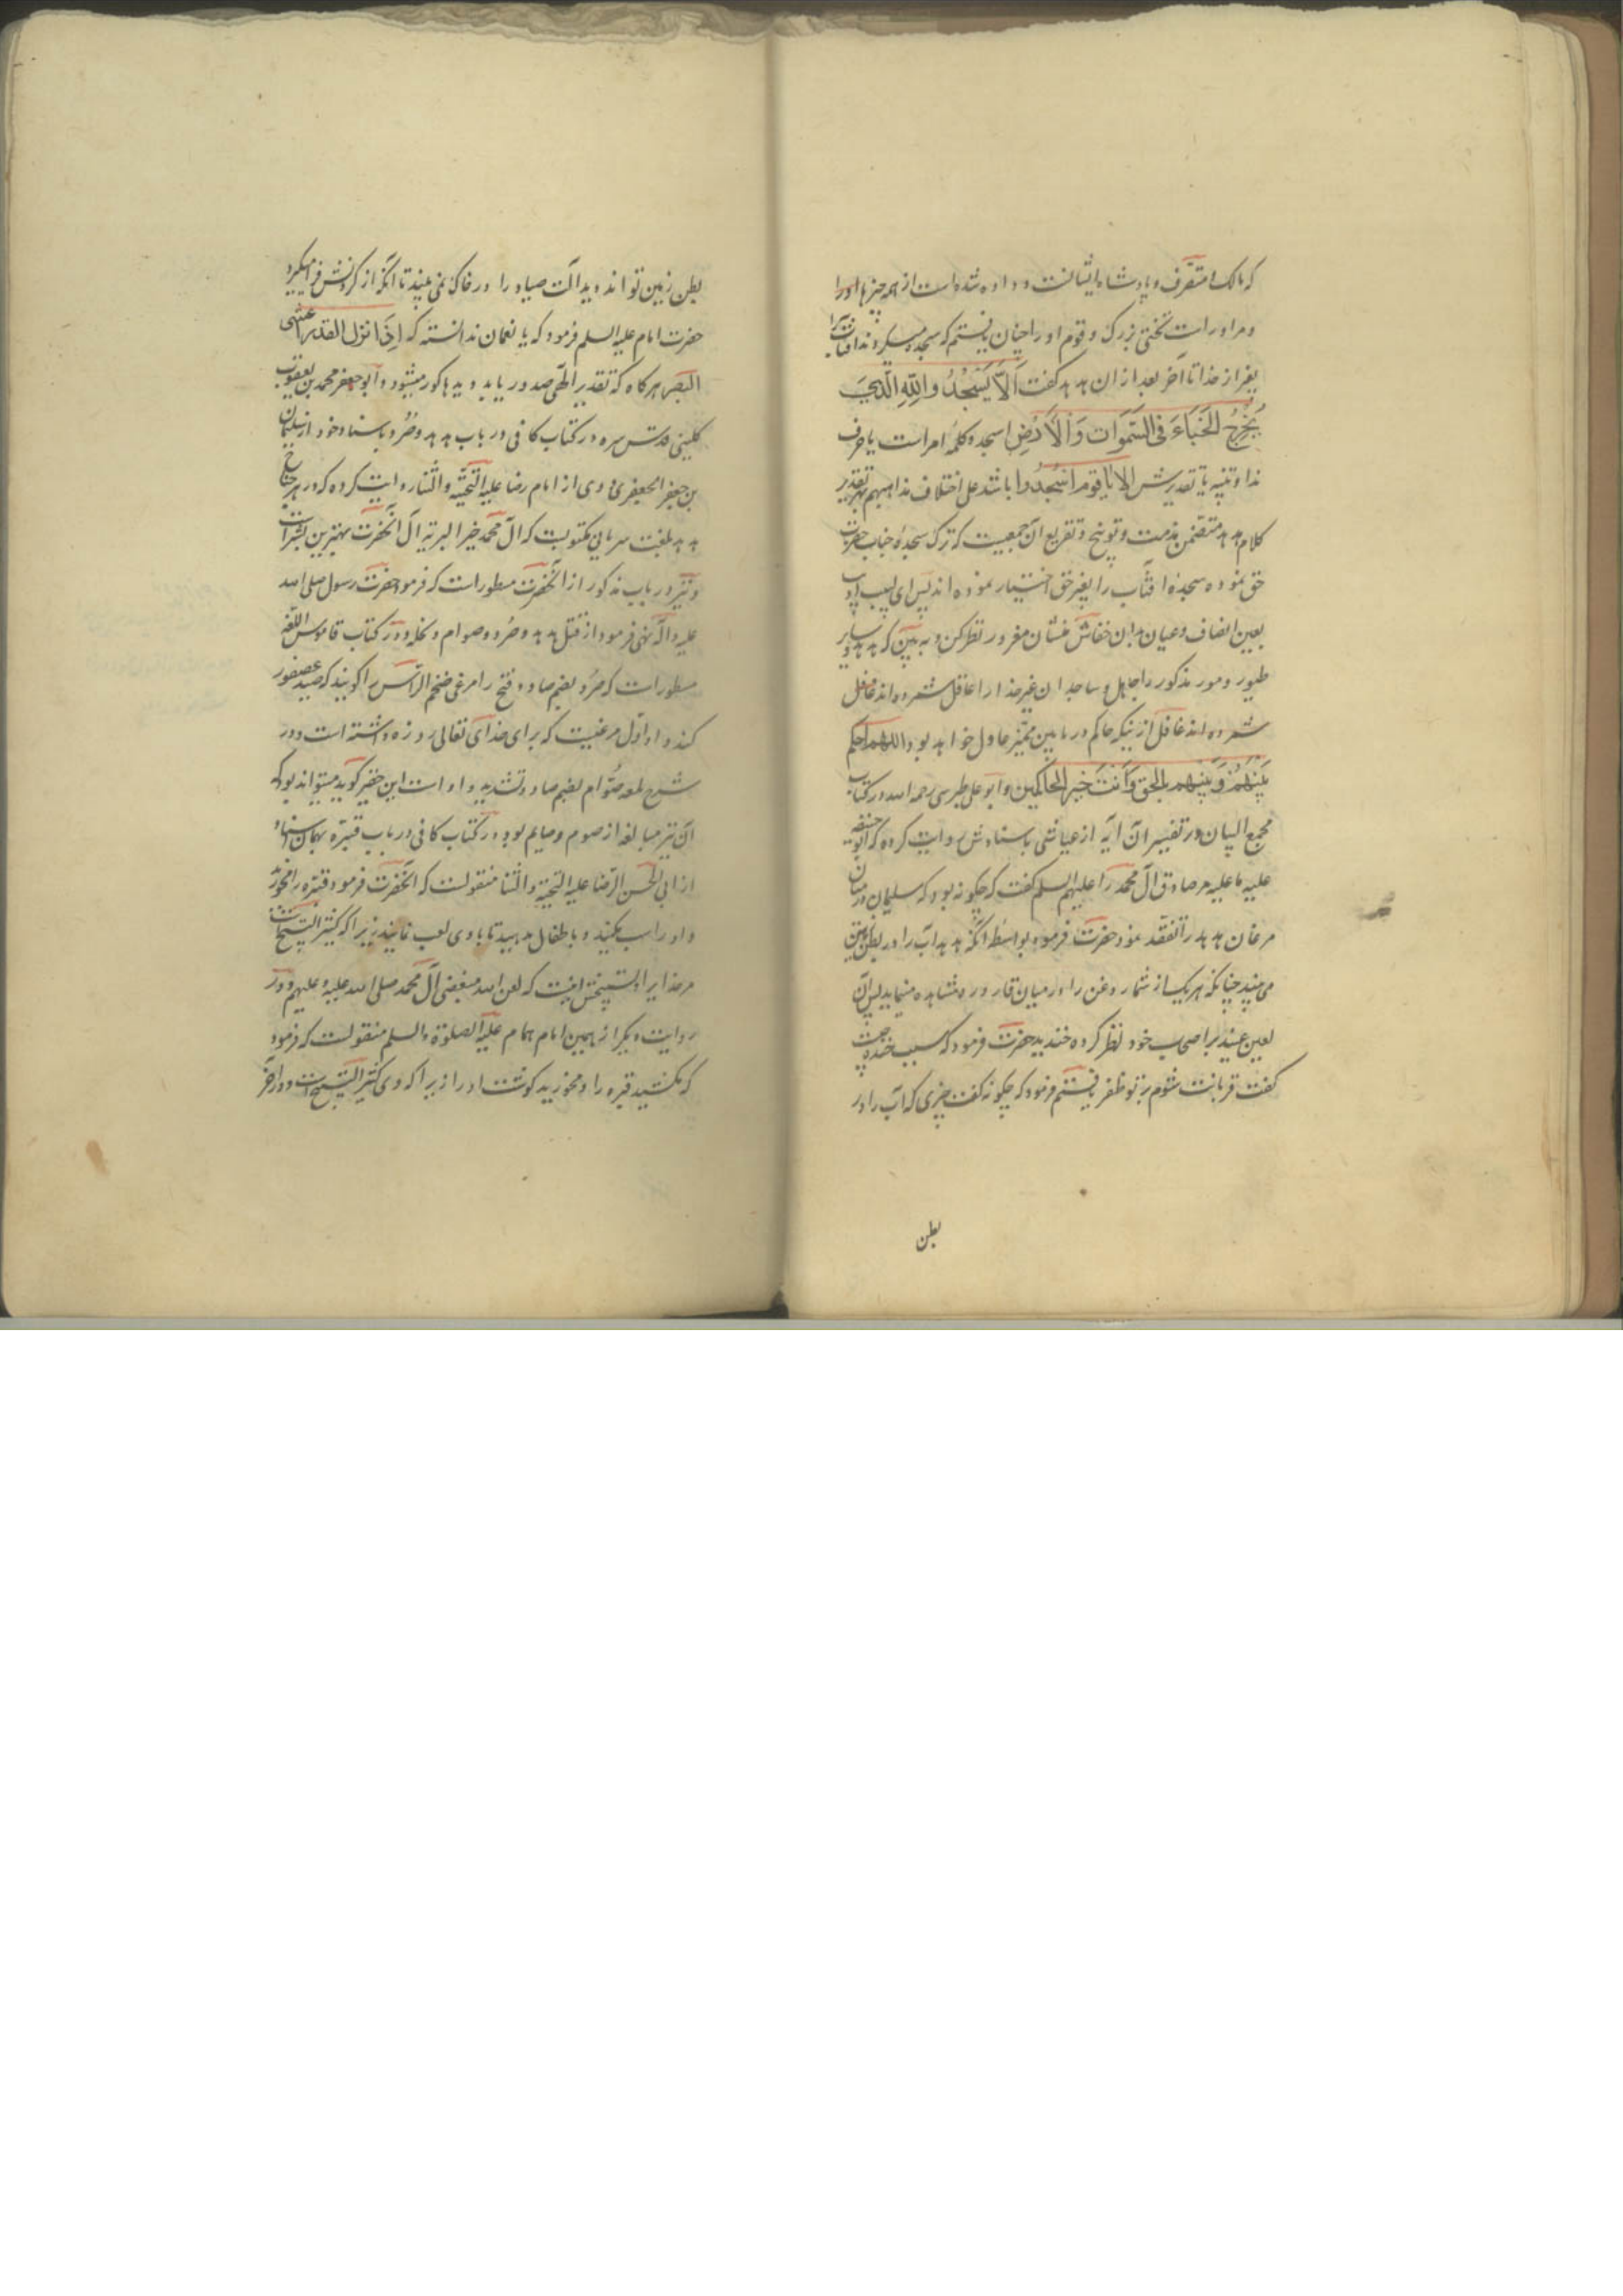 که مالک و متصرف و پادشاه ایشانست و داده شده است از همه چیزها او را
و مر او راست تختی بزرک و قوم او را چنان یافتم که سجده میکردند افتاب را
بغیر از خدا تا آخر بعد از ان هدهد کفت اَلاّ یَسْجُدُوا لِلّهِ الَّذِی
یُخْرِجُ الخَبْاءَ فِی السَّمَوَات وَالاَرْضِ اسجدوا کلمه امر است یا حرف
ندا و تنبیه یا تقدیرش الا یا قوم اسْجُدُوا باشد علی اختلاف مذاهبهم بهر تقدیر
کلام هدهد متضمن مذمت و توبیخ و تقریع آن جمعیت که ترک سجدهٔ جناب حضرت
حق نموده سجدهٔ افتاب را بغیر حق اختیار نموده اند پس ای لبیب ادیب
بعین انصاف و عیان بدان خفاش منشان مغرور نظر کن و به بین که هدهد و سایر
طیور و مور مذکور را جاهل و ساجدان غیر خدا را عاقل شمرده اند غافل
شمرده اند غافل ازینکه حاکم در مابین ممیز عادل خواهد بود اللهم احکم
بَیْنَهُمْ وَ بَیْنَهم بالحق وَاَنْتَ خَیر الحاکمین و ابو علی طبرسی رحمه الله در کتاب
مجمع البیان در تفسیر ان آیه از عیاشی باسنادش روایت کرده که ابو حنیفه
علیه ما علیه مر صادق آل محمد را علیهم السلم کفت که چکونه بود که سلیمان در میان
مرغان هدهد را تفقد نمود حضرت فرمود بواسطه انکه هدهد آب را در بطن زمین
می بیند چنانکه هر یک از شما روغن را در میان قاروره مشاهده مینماید پس آن
لعین عنید بر اصحاب خود نظر کرده خندید حضرت فرمود که سبب خنده چیست
کفت قربانت شوم بر تو ظفر یافتم فرمود که چکونه کفت چیزی که آب را در
بطن
بطن زمین تواند دید آلت صیاد را در خاک نمی بیند تا انکه از کردنش فرا میکیرد
حضرت امام علیه السلم فرمود که یا نعمان ندانسته که اِذَا نزل القدر عشی
البصر هر کاه که تقدیر الهی صدور یابد دیدها کور میشود و ابو جعفر محمد بن یعقوب
کلینی قدس سره در کتاب کافی در باب هدهد و صُرَد باسناد خود از سلیمان
بن جعفر الجعفری و وی از امام رضا علیه التحیه و الثنا روایت کرده که در هر جناح
هدهد بلغت سریانی مکتوبست که آل محمد خیر البریه آل آنحضرت بهترین بشر است
و نیز در باب مذکور از آنحضرت مسطور است که فرمود حضرت رسول صلی الله
علیه و اله نهی فرمود از قتل هدهد و صُرَد و صوام و نحله و در کتاب قاموس اللغه
مسطور است که صُرَد بضم صاد و فتح را مرغی ضخم الراس را کویند که صید عصفور
کند و او اول مرغیست که برای خدای تعالی روزه داشته است و در
شرح لمعه صُوّام بضم صاد و تشدید واو است این حقیر کوید میتواند بود که
آن نیز مبالغه از صوم و صایم بود و در کتاب کافی در باب قبّره بهمان اسناد
از ابی الحسن الرضا علیه التحیة والثنا منقولست که آنحضرت فرمود قبّره را مخورید
و او را سب مکنید و باطفال مدهید تا با وی لعب نمایند زیرا که کثیر التسبیح است
مر خدا را و تسبیحش اینست که لعن الله مبغضی آل محمد صلی الله علیه و علیهم و در
روایت دیکر از همین امام همام علیه الصلوة والسلم منقولست که فرمود
که مکشید قبره را و مخورید کوشت او را زیرا که وی کثیر التسبیح است و در آخر